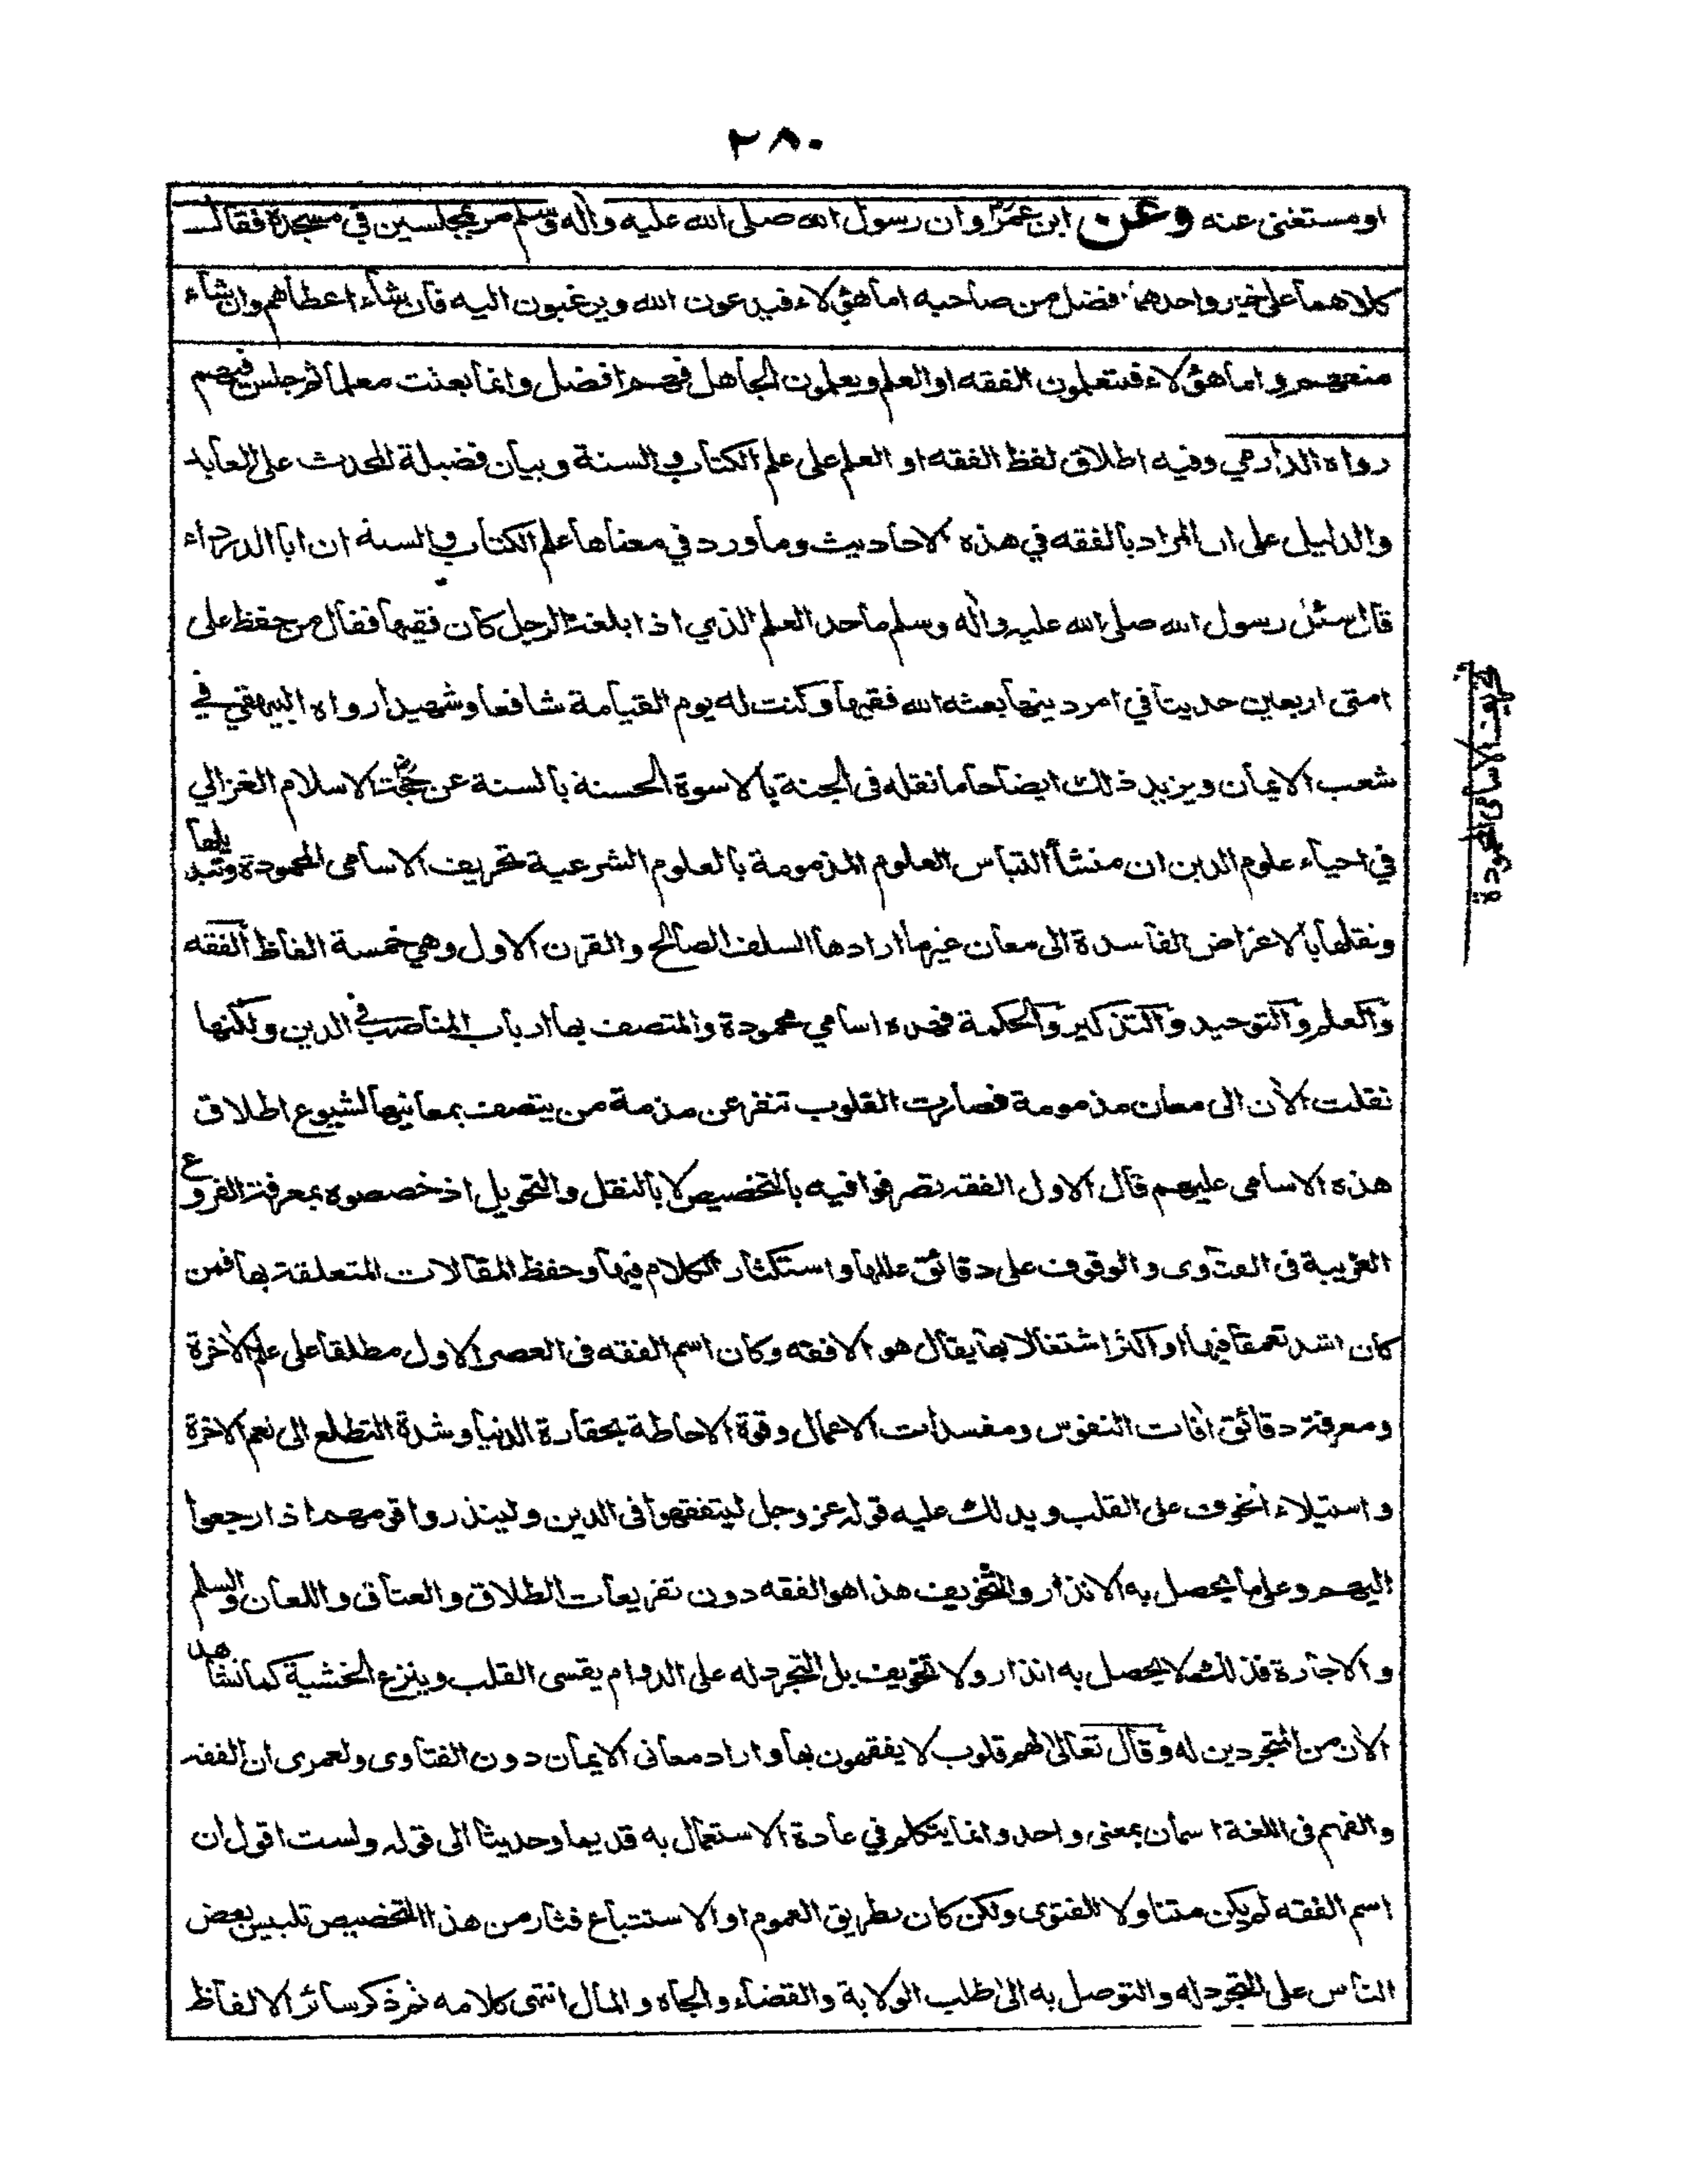 ٢٨٠
او مستغنى عنه وعن ابن عمرو ان رسول الله صلى الله عليه وآله وسلم مر بمجلسين في مسجده فقال
كلاهما على خير واحدهما افضل من صاحبه اما هؤلاء فيدعون الله ويرغبون اليه فان شاء اعطاهم وان شاء
منعهم واما هؤلاء فيتعلمون الفقه او العلم ويعلمون الجاهل فهم افضل وانما بعثت معلما ثم جلس فيهم
رواه الدارمي وفيه اطلاق لفظ الفقه او العلم على علم الكتاب والسنة وبيان فضيلة المحدث على العابد
والدليل على ان المراد بالفقه في هذه الاحاديث وما ورد في معناها علم الكتاب والسنه ان ابا الدرداء
قال سئل رسول الله صلى الله عليه وآله وسلم ما حد العلم الذي اذا بلغه الرجل كان فقيها فقال من حفظ على
امتى اربعين حديثا في امر دينها بعثه الله فقيها وكنت له يوم القيامة شافعا وشهيدا رواه البيهقي في
شعب الايمان ويزيد ذلك ايضاحا ما نقله فى الجنة بالاسوة الحسنه بالسنة عن حجت الاسلام الغزالي
في احياء علوم الدين ان منشأ التباس العلوم المذمومة بالعلوم الشرعية تحريف الاسامى المحمودة وتبديلها
ونقلها بالاغراض الفاسدة الى معان غير ما ارادها السلف الصالح والقرن الاول وهي خمسة الفاظ الفقه
والعلم والتوحيد والتذكير والحكمة فهذه اسامي محمودة والمتصف بها ارباب المناصب في الدين ولكنها
نقلت الآن الى معان مذمومة فصارت القلوب تنفر عن مذمة من يتصف بمعانيها لشيوع اطلاق
هذه الاسامى عليهم قال الاول الفقه تصرفوا فيه بالتخصيص لا بالنقل والتحويل اذ خصصوه بمعرفة الفروع
الغريبة فى الفتاوى والوقوف على دقائق عللها واستكثار الكلام فيها وحفظ المقالات المتعلقة بها فمن
كان اشد تعمقا فيها او اكثر اشتغالا بها يقال هو الافقه وكان اسم الفقه فى العصر الاول مطلقا على علم الآخرة
ومعرفة دقائق آفات النفوس ومفسدات الاعمال وقوة الاحاطة بحقارة الدنيا وشدة التطلع الى نعم الآخرة
واستيلاء الخوف على القلب ويدلك عليه قوله عز وجل ليتفقهوا فى الدين ولينذروا قومهم اذا رجعوا
اليهم وعلم ما يحصل به الانذار والتخويف هذا هو الفقه دون تفريعات الطلاق والعتاق واللعان والسلم
والاجارة فذلك لا يحصل به انذار ولا تخويف بل التجرد له على الدوام يقسى القلب وينزع الخشية كما نشاهد
الآن من المتجردين له وقال تعالى لهم قلوب لا يفقهون بها واراد معانى الايمان دون الفتاوى ولعمرى ان الفقه
والفهم فى اللغة اسمان بمعنى واحد وانما يتكلم في عادة الاستعمال به قديما وحديثا الى قوله ولست اقول ان
اسم الفقه لم يكن متناولا للفتوى ولكن كان بطريق العموم او الاستتباع فثار من هذا التخصيص تلبيس بعض
الناس على التجرد له والتوصل به الى طلب الولاية والقضاء والجاه والمال انتهى كلامه ثم ذكر سائر الالفاظ